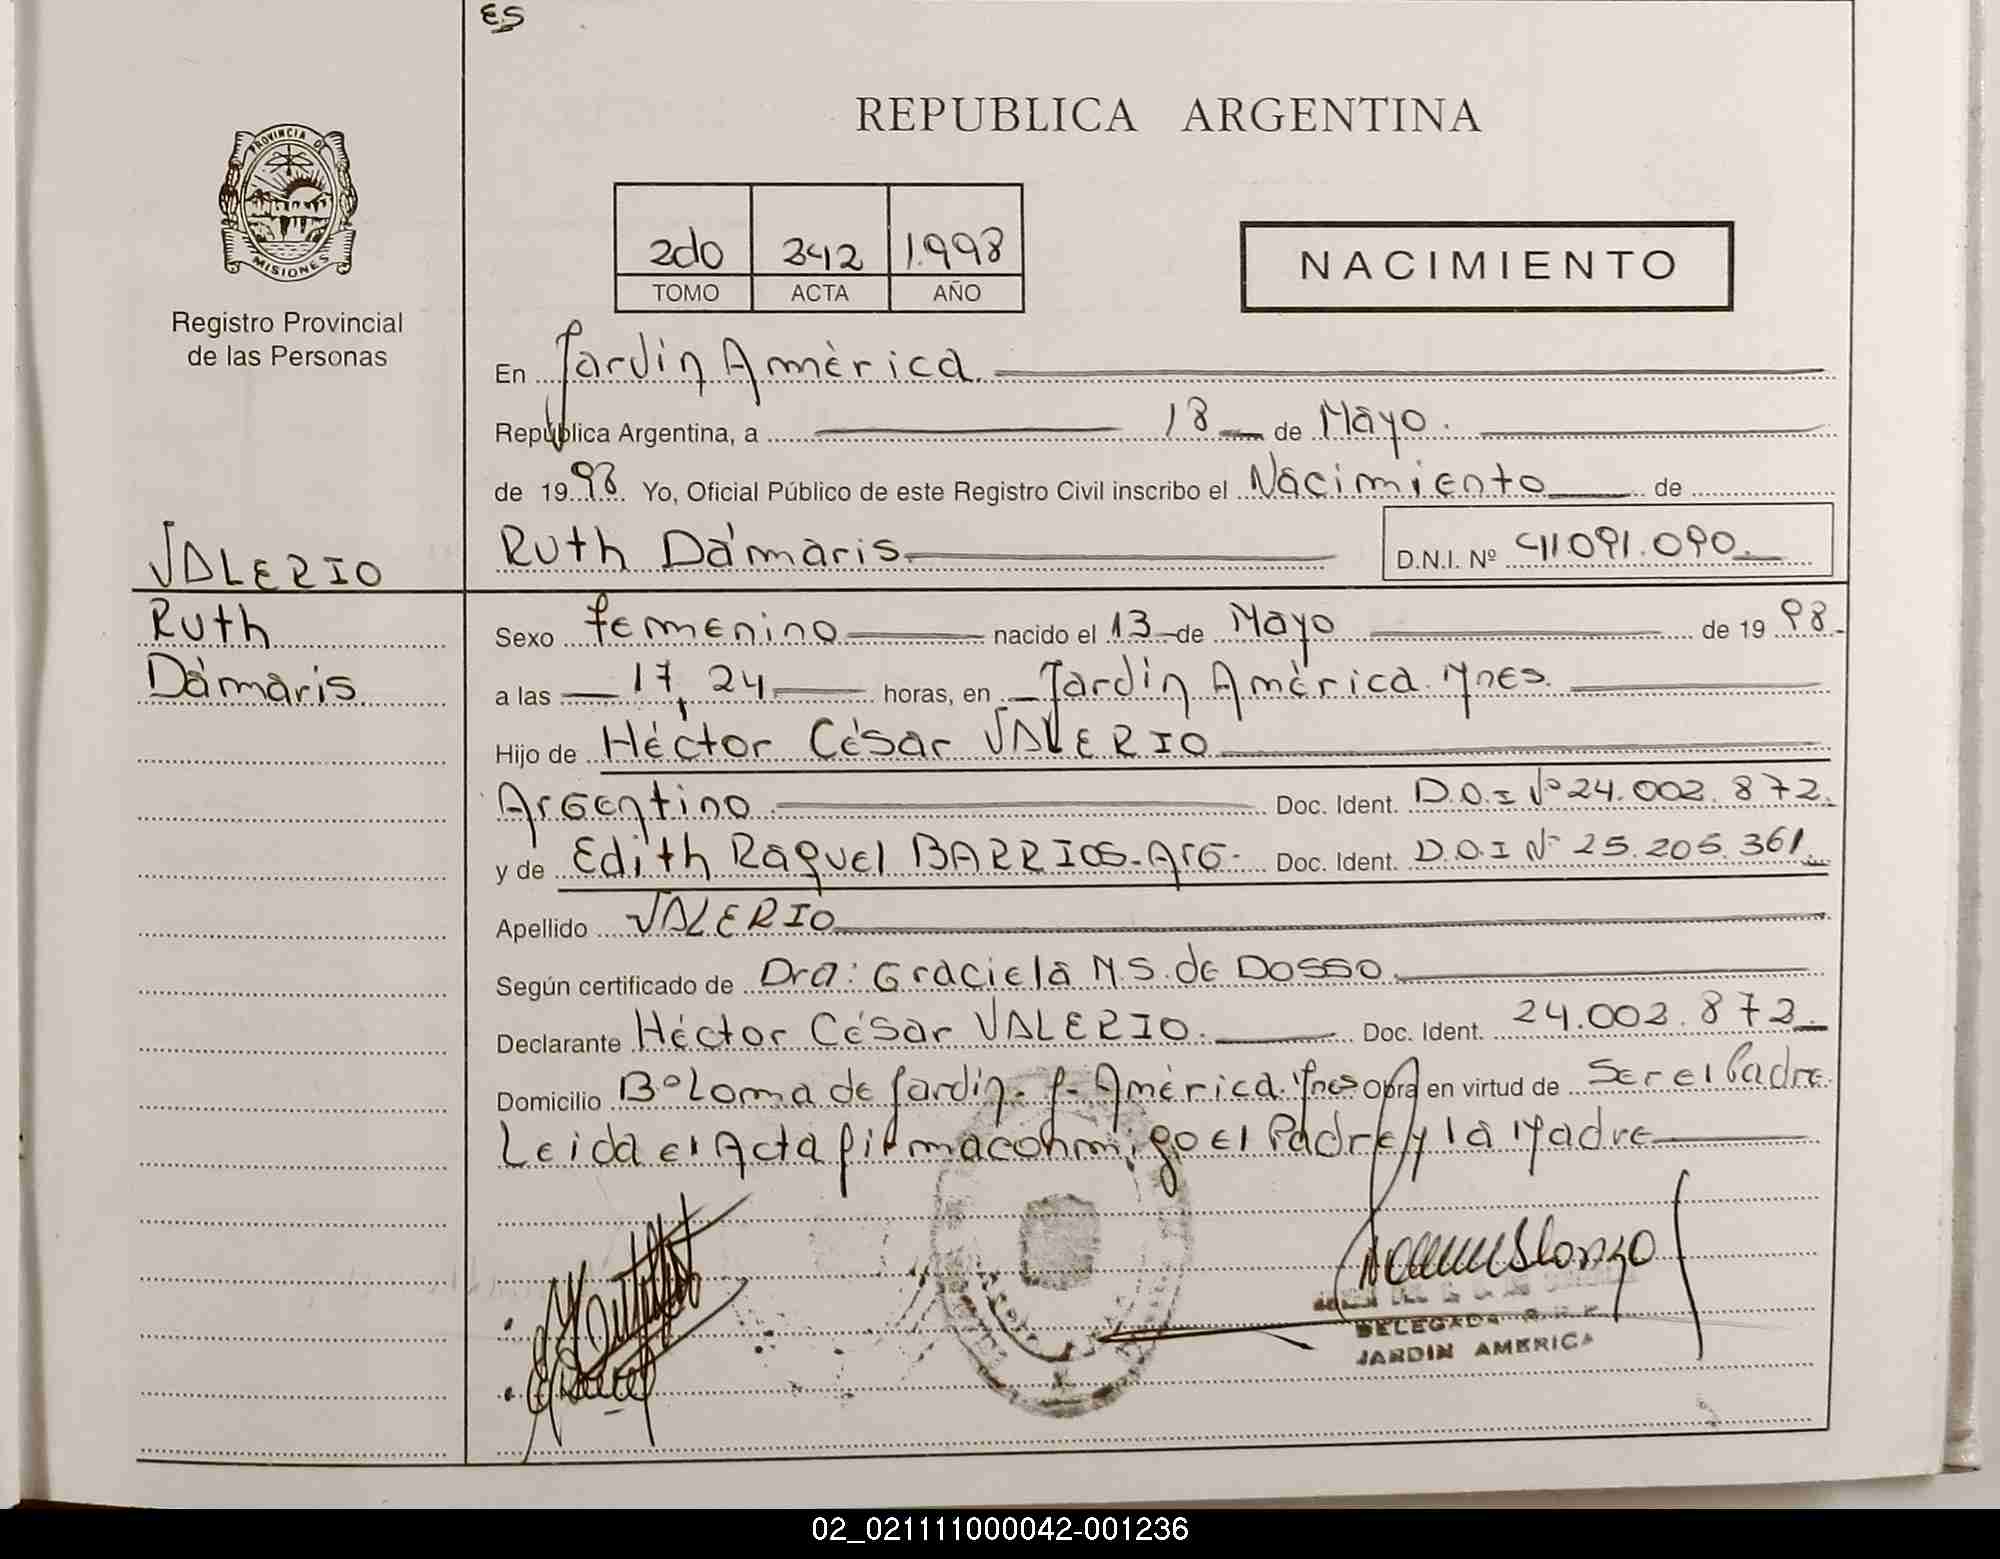 ES
REPUBLICA ARGENTINA
PROVINCIA DE
MISIONES
Registro Provincial
de las Personas
2do 342 1.998
TOMO ACTA AÑO
NACIMIENTO
En Jardín América.
República Argentina, a 18 de Mayo.
de 19 98 Yo, Oficial Público de este Registro Civil inscribo el Nacimiento de
Ruth Dámaris D.N.I. Nº 41.091.090.
VALERIO
Ruth
Dámaris
Sexo femenino nacido el 13 de Mayo de 19 98
a las 17,24 horas, en Jardín América. Mnes.
Hijo de Héctor César VALERIO
Argentino Doc. Ident. D.N.I Nº 24.002.872.
y de Edith Raquel BARRIOS-Arg- Doc. Ident. D.N.I Nº 25.205.361.
Apellido VALERIO
Según certificado de Dra: Graciela M.S. de DOSSO.
Declarante Héctor César VALERIO. Doc. Ident. 24.002.872.
Domicilio Bº Loma de Jardín. J. América. Mnes Obra en virtud de Ser el Padre.
Leida el Acta firma conmigo el Padre y la Madre
DELEGADA R.P.P.
JARDIN AMERICA
02_021111000042-001236